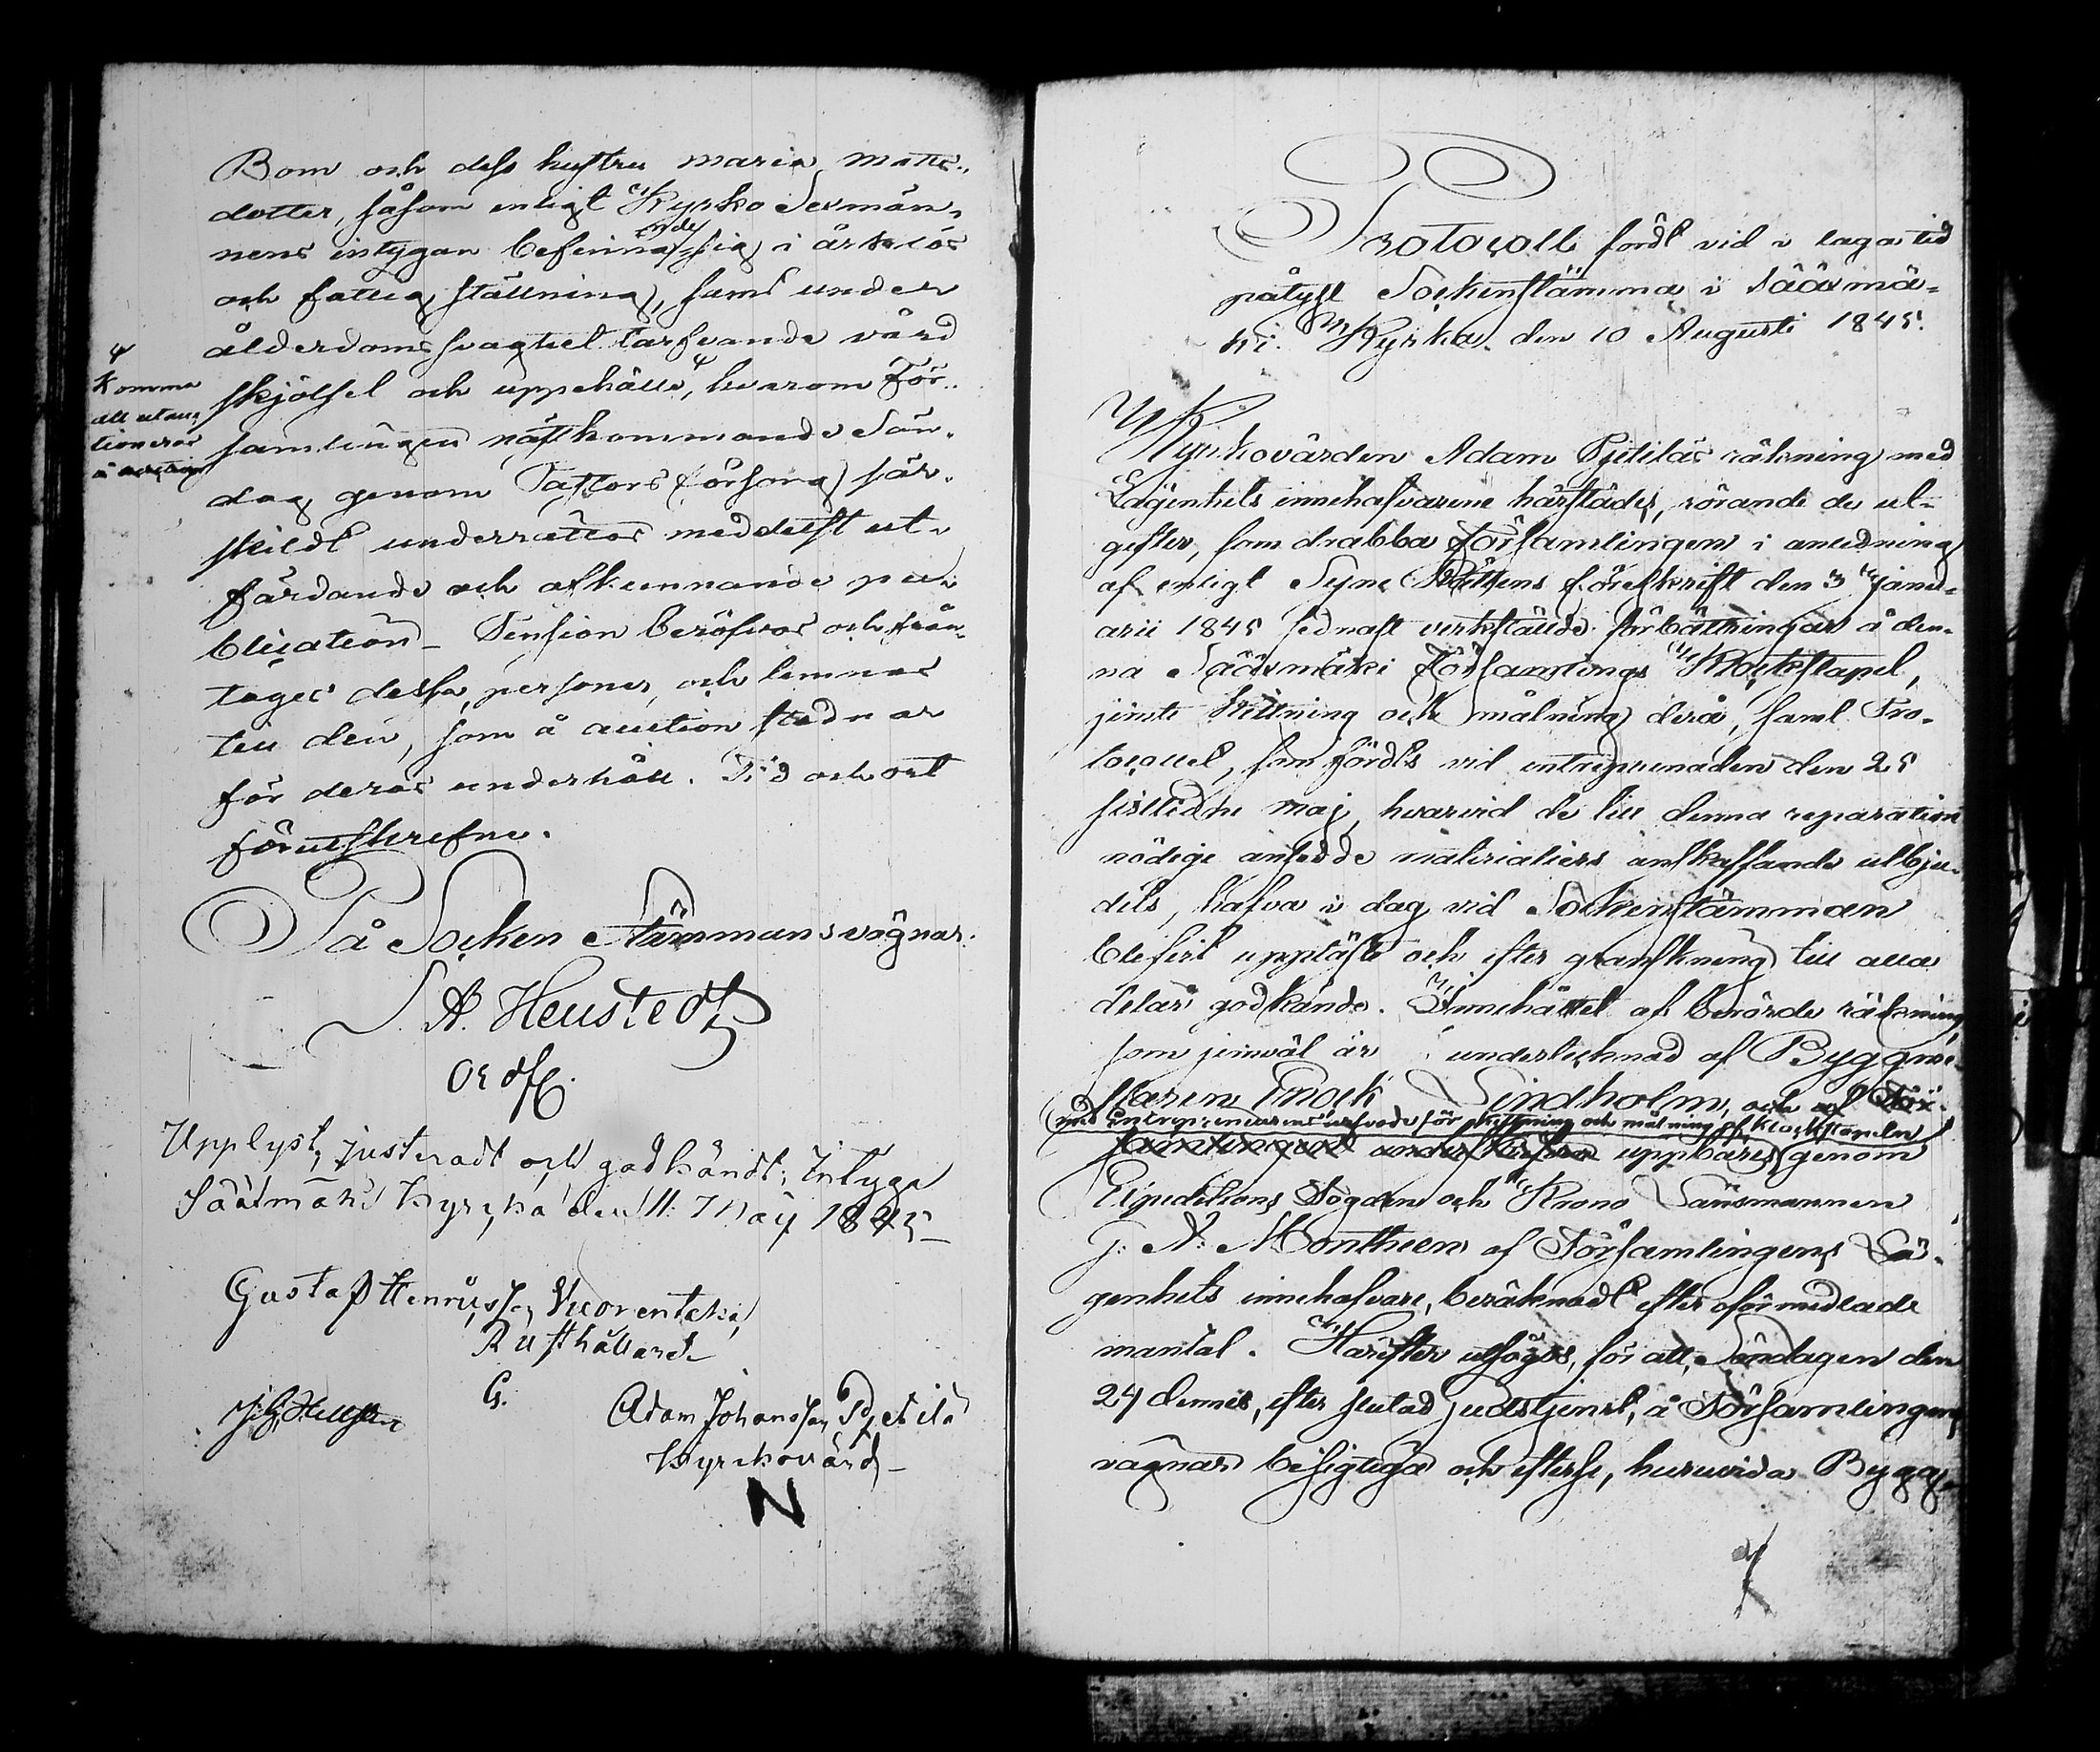 Bom och dess hustru Maria Matts-
dotter, såsom enligt Kyrko Sexmän-
nens intygan befinnande sig i ärfvelös
och fattig ställning, samt under
ålderdoms svaghet tarfvande vård
skjötsel och uppehälle, hvarom För-
samlingen nästkommande Sön-
dag genom Pastors försorg sär-
skildt underrättas meddelst ut-
färdande och afkunnande pu-
blication. Pension beröfvas och från-
tages dessa personer, och lemnas
till den, som å auction stadnar
för deras underhåll. Tid och ort
förutskrefne.
Komma
att utauc-
tioneras
På Socken Stämmans vägnar.
A. Heustedt
Ordf.
Upplyst, justeradt och godkändt; Intyga
Sääxmäki kyrcka den 11 May 1845
Gustaf Henriksson Vuorentaka
Rusthållare
G.
Adam Johansson Pjetilä
Kyrckovärd
N
Protocoll fördt vid i laga tid
pålyst Sockenstämma i Sääxmä-
ki Kyrka den 10 Augusti 1845.
Kyrkovärden Adam Pjetiläs räkning med
Lägenhets innehafvarene härstädes, rörande de ut-
gifter, som drabba Församlingen i anledning
af enligt Syne Rättens föreskrift den 3 Janu-
arii 1845 sednast verkställde förbättringar å den-
na Sääxmäki Församlings Klockstapel,
jemte kittning och målning derå, samt Pro-
tocollet, som fördts vid entreprenaden den 25
sistledne Maj, hvarvid de till denna reparation
nödige ansedde materialiers anskaffande utbju-
dits, hafva i dag vid Sockenstämman
blifvit uppläste och efter granskning till alla
delar godkände. Innehållet af berörde räkning
som jemväl är undertecknad af Byggmä-
staren Enock Lindholm, och af För-
med Entrepreneurens arfvode för kittning och målning af klockstapeln
samlingens uppbäres genom
Expeditions Fogden och Krono Länsmannen
J. A. Monthen af Församlingens Lä-
genhets innehafvare, beräknadt efter oförmedlade
mantal. Härefter utsågos, för att, Söndagen den
24 dennes, efter slutad Gudstjenst, å Församlingens
vägnar besigtiga och efterse, huruvida Bygg-